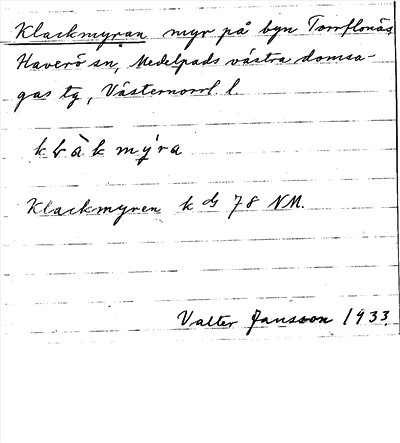 Klackmyran myr på byn Torrflonäs
Haverö sn, Medelpads västra domsa-
gas tg, Västernorrl. l.
klàkmýra
Klackmyren k ds 78 NM.
Valter Jansson 1933.